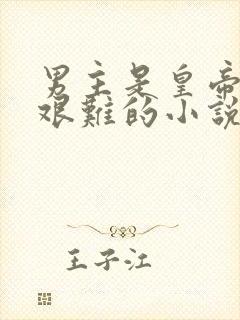 男主是皇帝
艰難的小説
王子江